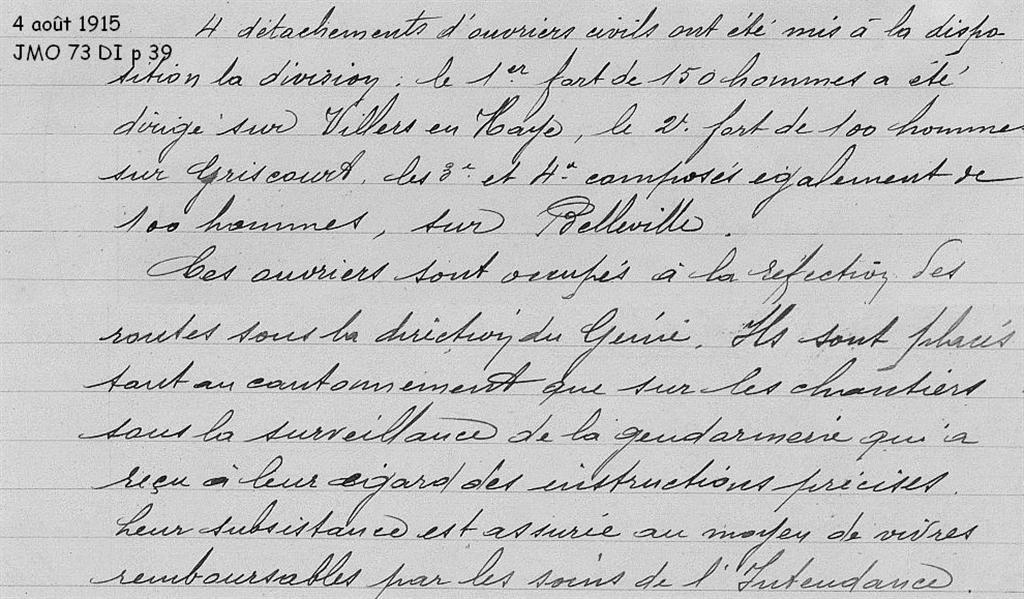 4 août 1915
JMO 73 DI p 39
4 détachements d'ouvriers civils ont été mis à la dispo-
sition la division : le 1er fort de 150 hommes a été
dirigé sur Villers en Haye, le 2e fort de 100 hommes
sur Griscourt, les 3e et 4e composés également de
100 hommes, sur Belleville.
Ces ouvriers sont occupés à la réfection des
routes sous la direction du Génie. Ils sont placés
tant au cantonnement que sur les chantiers
sous la surveillance de la gendarmerie qui a
reçu à leur égard des instructions précises.
Leur subsistance est assurée au moyen de vivres
remboursables par les soins de l'Intendance.